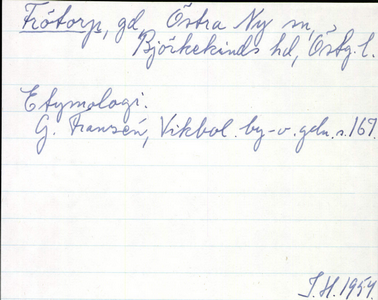 Frötorp, gd Östra Ny sn,
Björkekinds hd, Östg. l.
Etymologi.
G. Franzén, Vikbol. by- o. gdn. s. 167.
J.H. 1954.